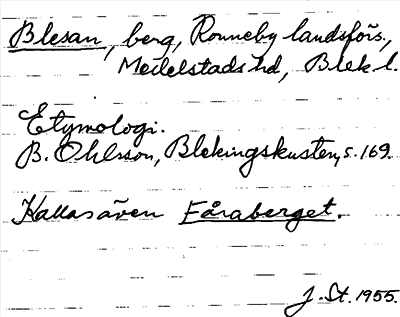 Blesan, berg, Ronneby landsförs.,
Medelstads hd, Blek l.
Etymologi.
B. Ohlsson, Blekingskusten, s. 169.
Kallas även Fåraberget.
J. St. 1955.